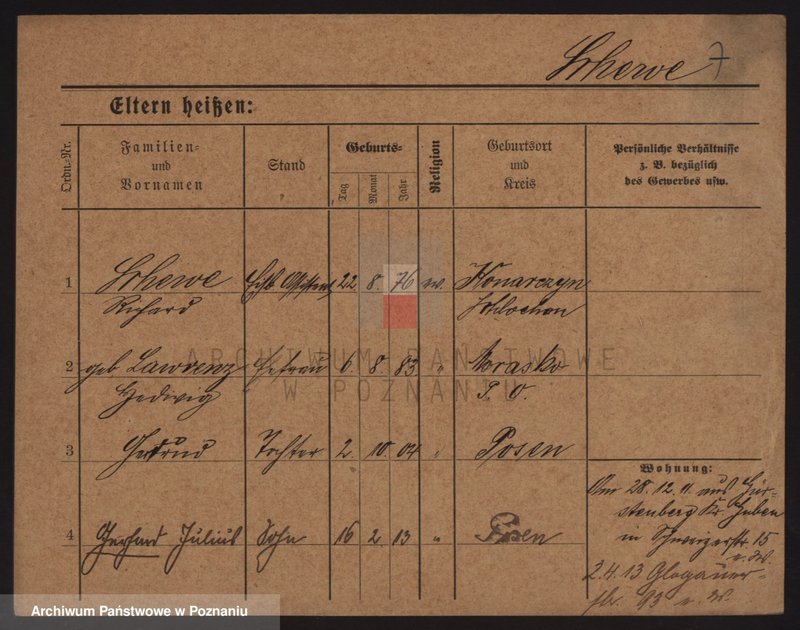 Scherwe 7
Eltern heißen:
Ordn.-Nr. Familien- und Vornamen Stand Geburts- Tag Monat Jahr Religion Geburtsort und Kreis Persönliche Verhältnisse z. B. bezüglich des Gewerbes usw.
1 Scherwe Assistent 22 8. 76 ev. Konarczyn
Richard Schlochau
2 geb Lawrenz Ehefrau 6 8. 83 " Morasko
Hedwig P. O.
3 Gertrud Tochter 2. 10. 04 " Posen
Wohnung:
Am 28. 12. 11. aus Für-
stenberg Kr. Guben
4 Gerhard Julius Sohn 16 2. 13 " Posen
in 15
2.4.13 Glogauer-
str. 93
ARCHIWUM PAŃSTWOWE
W POZNANIU
Archiwum Państwowe w Poznaniu